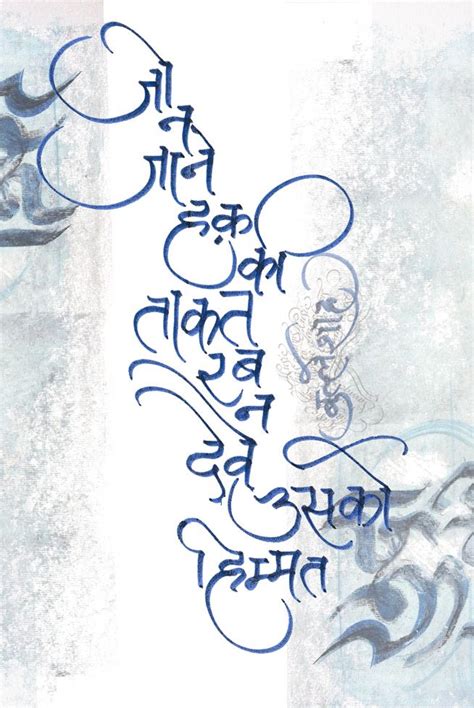 जो
न
जाने
हक़
की
ताकत
रब
न
देवे
उसको
हिम्मत
बुल्लेशाह